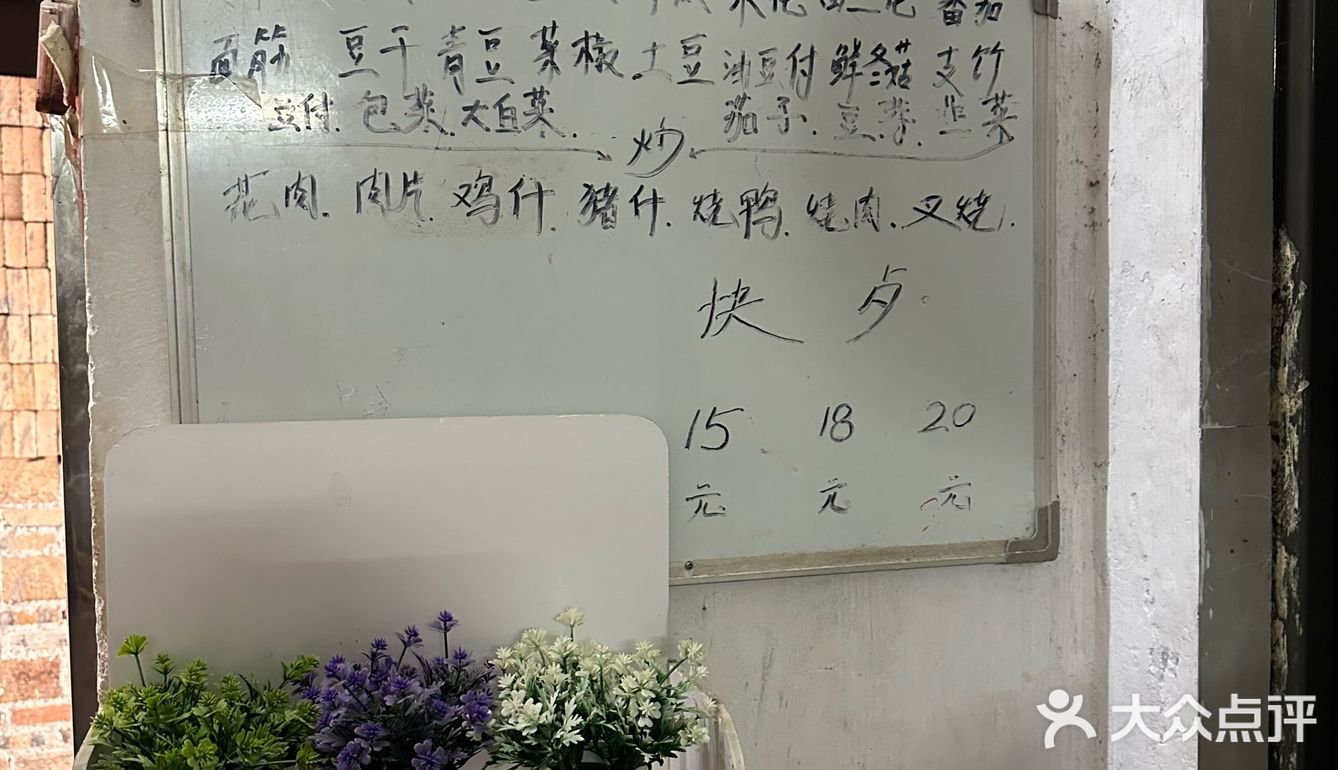 番茄
面筋 豆干 青豆 菜椒 土豆 油豆付 鲜冬菇 支竹
豆付. 包菜. 大白菜. 茄子. 豆芽. 韭菜
炒
花肉. 肉片. 鸡什. 猪什. 烧鸭. 烧肉. 叉烧.
快 夕.
15 18 20
元 元 元
大众点评